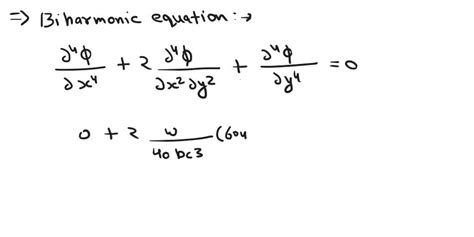 ⇒ Biharmonic equation :→
∂⁴ϕ/∂x⁴ + 2 ∂⁴ϕ/∂x²∂y² + ∂⁴ϕ/∂y⁴ = 0
0 + 2 w/40bc3 (60y